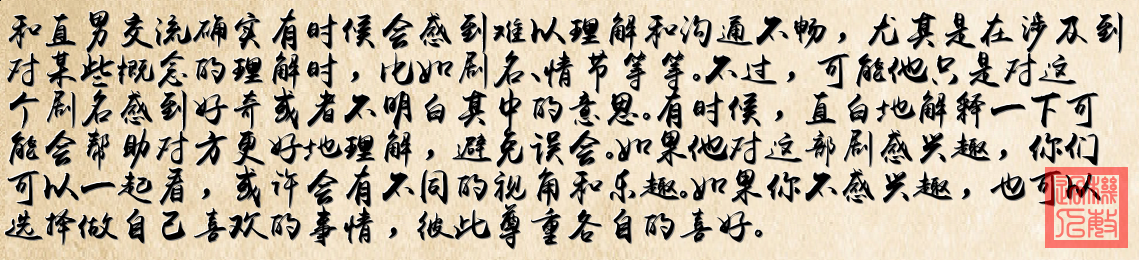 和直男交流确实有时侯会感到难以理解和沟通不畅，尤其是在涉及到
对某些概念的理解时，比如剧名、情节等等。不过，可能他只是对这
个剧名感到好奇或者不明白其中的意思。有时侯，直白地解释一下可
能会帮助对方更好地理解，避免误会。如果他对这部剧感兴趣，你们
可以一起看，或许会有不同的视角和乐趣。如果你不感兴趣，也可以
选择做自己喜欢的事情，彼此尊重各自的喜好。